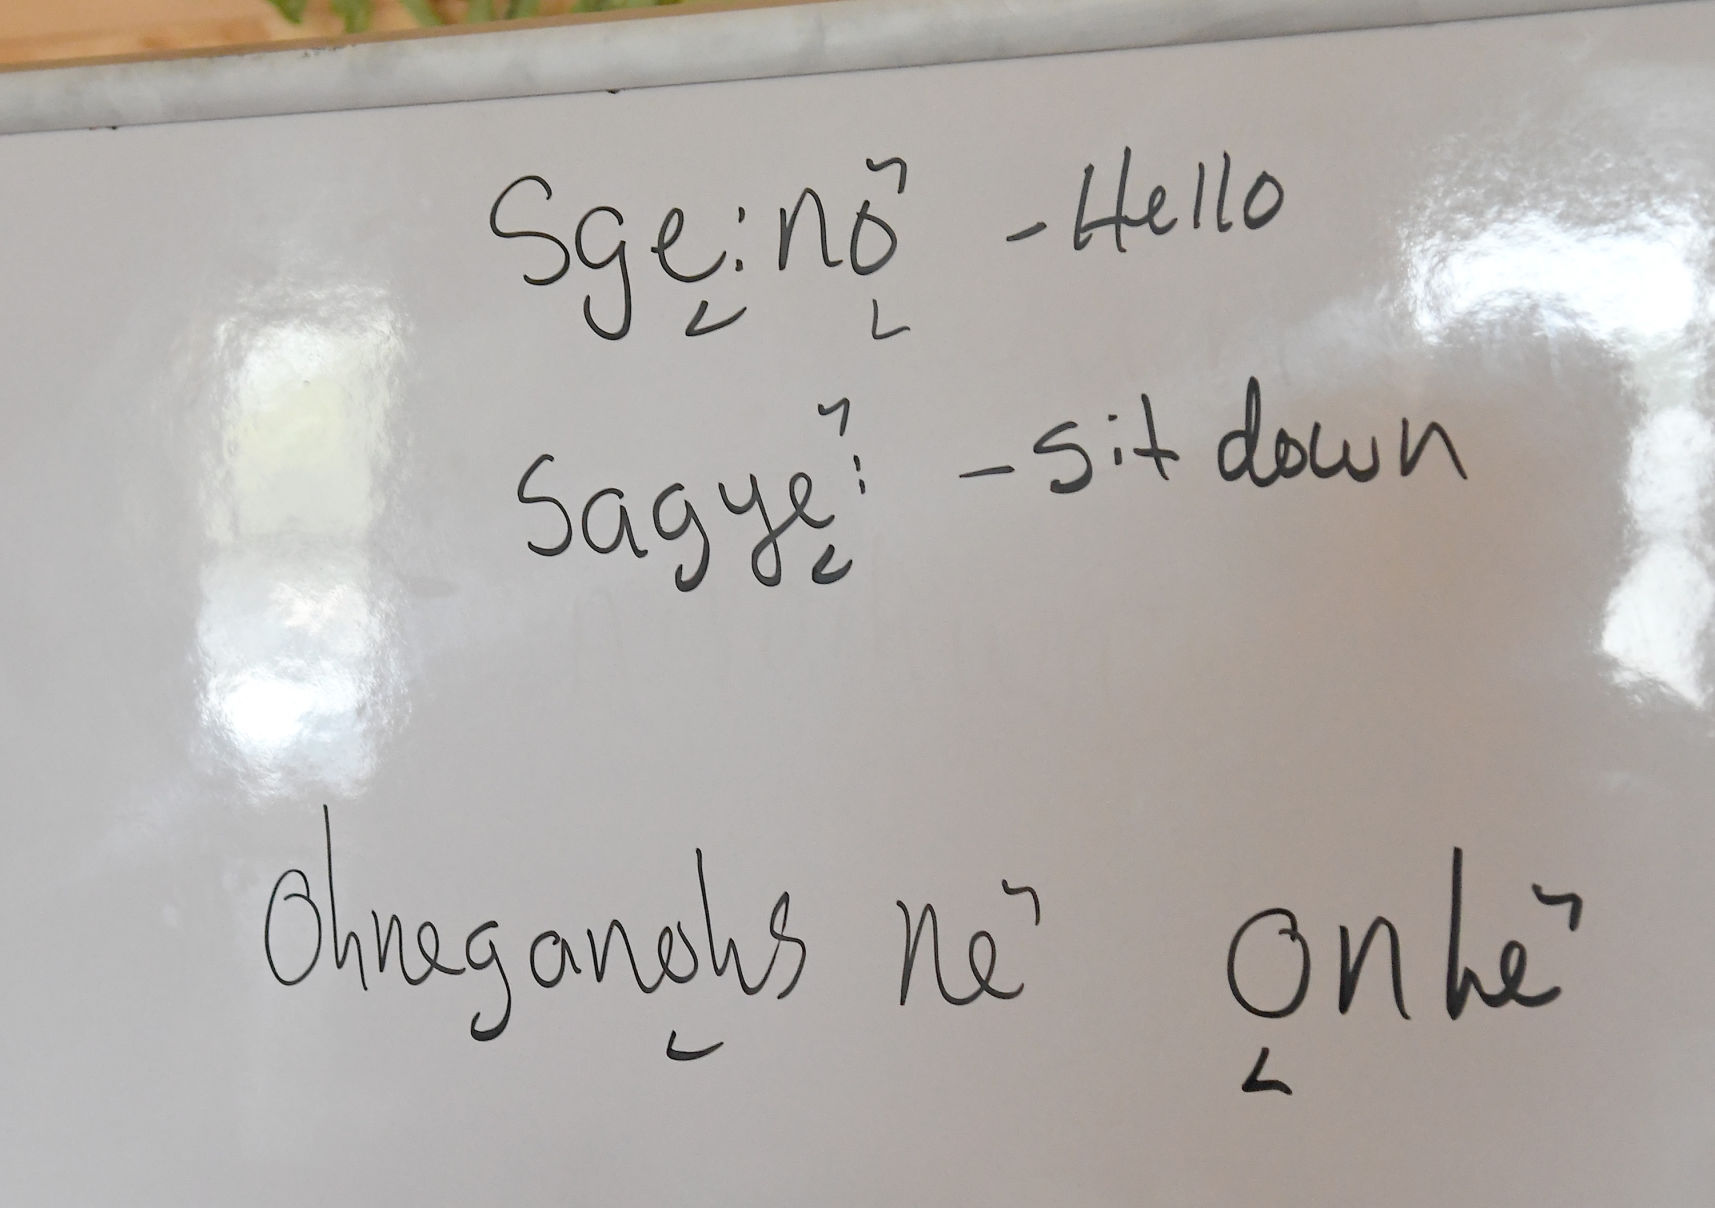 Sgę:nǫ̓ - Hello
Sagyę̓: - sit down
Ohneganǫhs ne̓ ǫnhe̓